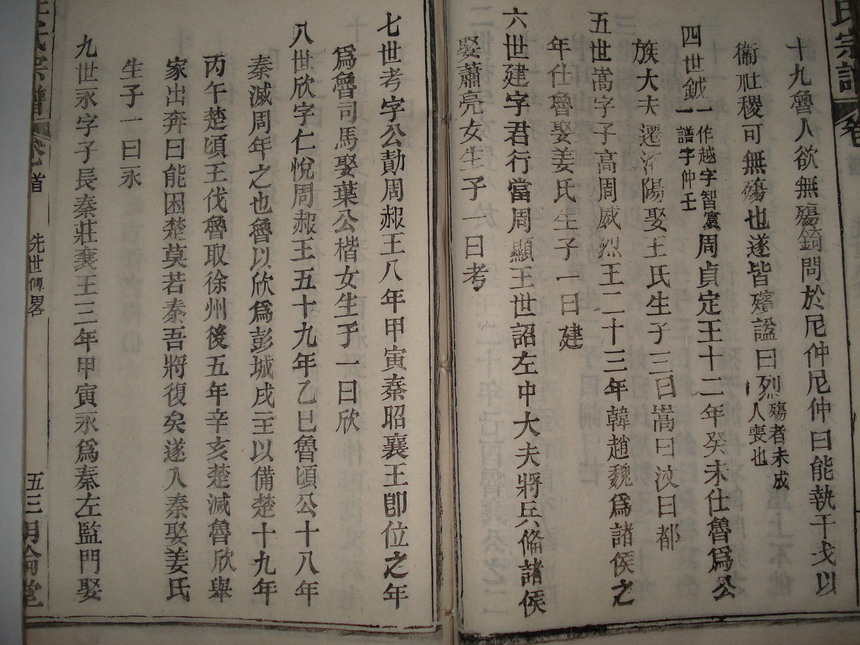 氏宗譜 卷
十九魯人欲無殤錡問於尼仲尼仲曰能執干戈以
衞社稷可無殤也遂皆殯諡曰烈 殤者未成
人喪也
四世鉞 一作越字智
一譜字仲壬 周貞定王十二年癸未仕魯爲公
族大夫遷濟陽娶王氏生子三曰嵩曰汶曰都
五世嵩字子高周威烈王二十三年韓趙魏爲諸侯之
年仕魯娶姜氏生子一曰建
六世建字君行當周顯王世詔左中大夫將兵俻諸侯
娶蕭亮女生子一曰考
七世考字公勣周赧王八年甲寅秦昭襄王卽位之年
爲魯司馬娶葉公楷女生子一曰欣
八世欣字仁悅周赧王五十九年乙巳魯頃公十八年
秦滅周年之也魯以欣爲彭城戌主以備楚十九年
丙午楚頃王伐魯取徐州後五年辛亥楚滅魯欣舉
家出奔曰能困楚莫若秦吾將復矣遂入秦娶姜氏
生子一曰永
九世永字子長秦莊襄王三年甲寅永爲秦左監門娶
氏宗譜 卷首 先世傳畧 五三 明倫堂